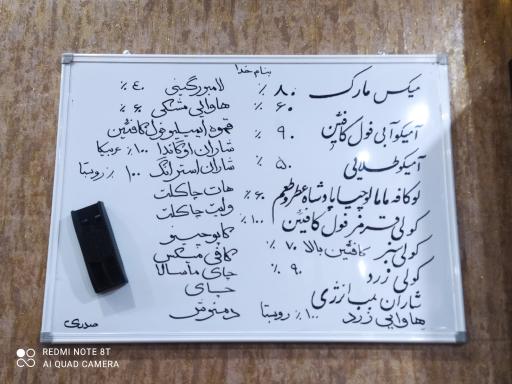 بنام خدا
میکس مارک ۸۰ ٪
۶۰ ٪
آمیکو آبی فول کافئین ۹۰ ٪
آمیکو طلایی ۵۰ ٪
لوکافه ماما لوچیا پادشاه عطر و طعم ۶۰ ٪
کولی قرمز فول کافئین ۱۰۰ ٪
کولی سبز کافئین بالا ۷۰ ٪
کولی زرد ۹۰ ٪
شاران بمب انرژی
هاوایی زرد ۱۰۰ ٪ روبستا
لامبورگینی ۴۰ ٪
هاوایی مشکی ۶۰ ٪
قهوه امیلیو فول کافئین
شاران اوگاندا ۱۰۰ ٪ عربیکا
شاران استرانگ ۱۰۰ ٪ روبستا
هات چاکلت
وایت چاکلت
کاپوچینو
کافی میکس
چای ماسالا
چای
دمنوش
صدری
REDMI NOTE 8T
AI QUAD CAMERA